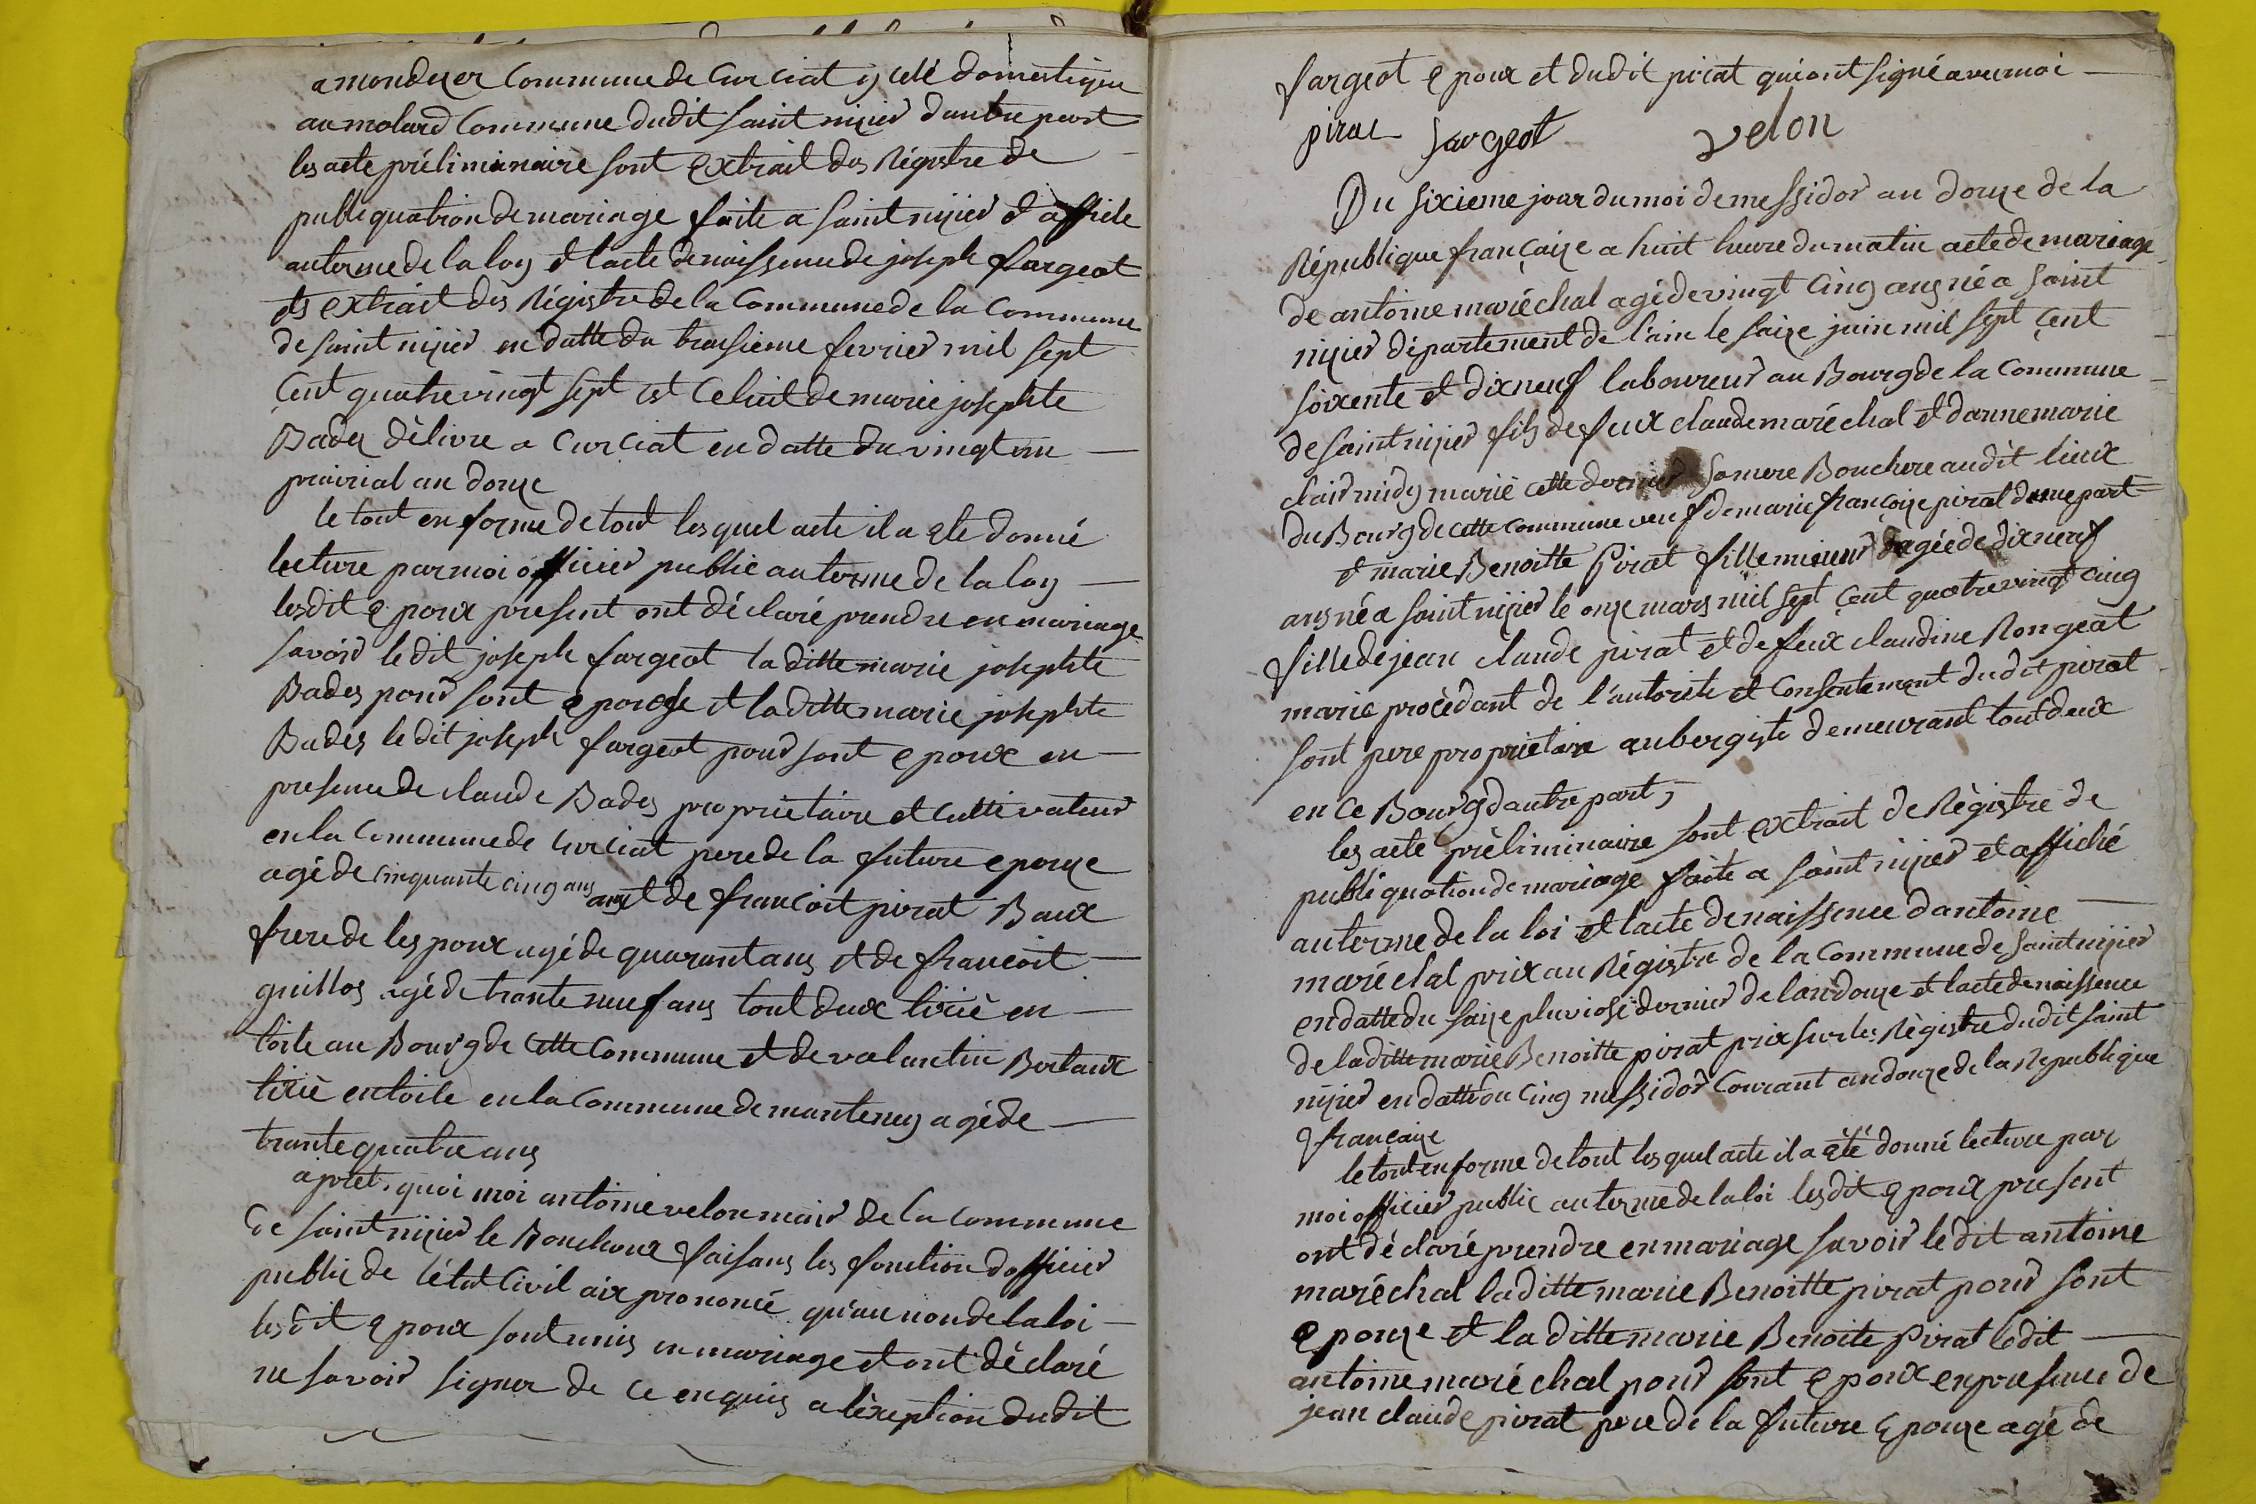 amonderer Commune de Curciat y celé domestique
au molard Commune dudit saint nizier dautre part
les acte préliminaire sont extrait des Régistre de
publiquation de mariage faite a saint nizier et affiché
au terme de la loy et lacte de naissence de joseph fargeot
ets extrait des Régistre de la Commune de la Commune
de saint nizier en datte du troisieme fevrier mil sept
Çent quatre vingt sept est Celuit de marie josephte
Badez dèlivre a Curciat en datte du vingt un
prairial an douze
le tout en forme de tout lesquel acte il a ete donné
lecture par moi officier public au terme de la loy
lesdit epoux present ont déclaré prendre en mariage
savoir le dit joseph fargeot la ditte marie josephte
Badez pour sont epouse et la ditte marie josephte
Badez le dit joseph fargeot pour sont epoux en
presence de claude Badez propriétaire et cultivateur
en la Commune de Curciat pere de la future epouze
agé de cinquante cinq ans et de françoit pirat Baux
frere de lespoux agé de quarant ans et de francoit
guillos agé de trante neuf ans tout deux tirié en
toile au Bourg de cette Commune et de valantin Bertaux
tirié en toile en la Commune de manteney agé de
trante quatre ans
apret quoi moi antoine velon mair de la commune
de saint nizier le Bouchoux faisans les fonction dofficier
public de létat Civil aix prononcé qu'au non de la loi
lesdit epoux sont unis en mariage et ont déclaré
ne savoir signer de ce enquis a lexeption dudit
fargeot epoux et dudit pirat qui ont signé avec moi
pirat fargeot velon
Du sixieme jour du moi de messidor an douze de la
République françaize a huit heure du matin acte de mariage
de antoine maréchal agé de vingt cinq ans né a saint
nizier département de l'ain le saize juin mil sept Çent
soixente et dix neuf laboureur au Bourg de la Commune
de saint nizier fils de feux claude maréchal et danne marie
clair midy marié cette dernier sa mere Bouchere audit lieux
du Bourg de cette commune veuf de marie françoize pirat dune part
et marie Benoitte Pirat fille mineur agée de dix neuf
ans né a saint nizier le onze mars mil sept Çent quatre vingt cinq
fille de jean claude pirat et de feux claudine Rongeat
marie procèdant de l'autorité et Consentement dudit pirat
sont pere propriétaire aubergiste demeurant tout deux
en ce Bourg dautre part,
les acte préliminaire sont extrait de Régistre de
publiquation de mariage faite a saint nizier et affiché
au terme de la loi et lacte de naissence dantoine
maréchal prix au Régistre de la Commune de saint nizier
en datte du saize pluviose dernier de lan douze et lacte de naissence
de la ditte marie Benoitte pirat prix sur les Régistre dudit saint
nizier en datte du cinq messidor Courant an douze de la Republique
françaize
le tout en forme de tout lesquel acte il a été donné lecture par
moi officier public au terme de la loi lesdit epoux present
ont déclaré prendre en mariage savoir le dit antoine
maréchal la ditte marie Benoitte pirat pour sont
epouze et la ditte marie Benoite Pirat ledit
antoine maréchal pour sont epoux en presence de
jean claude pirat pere de la future epouze agé de